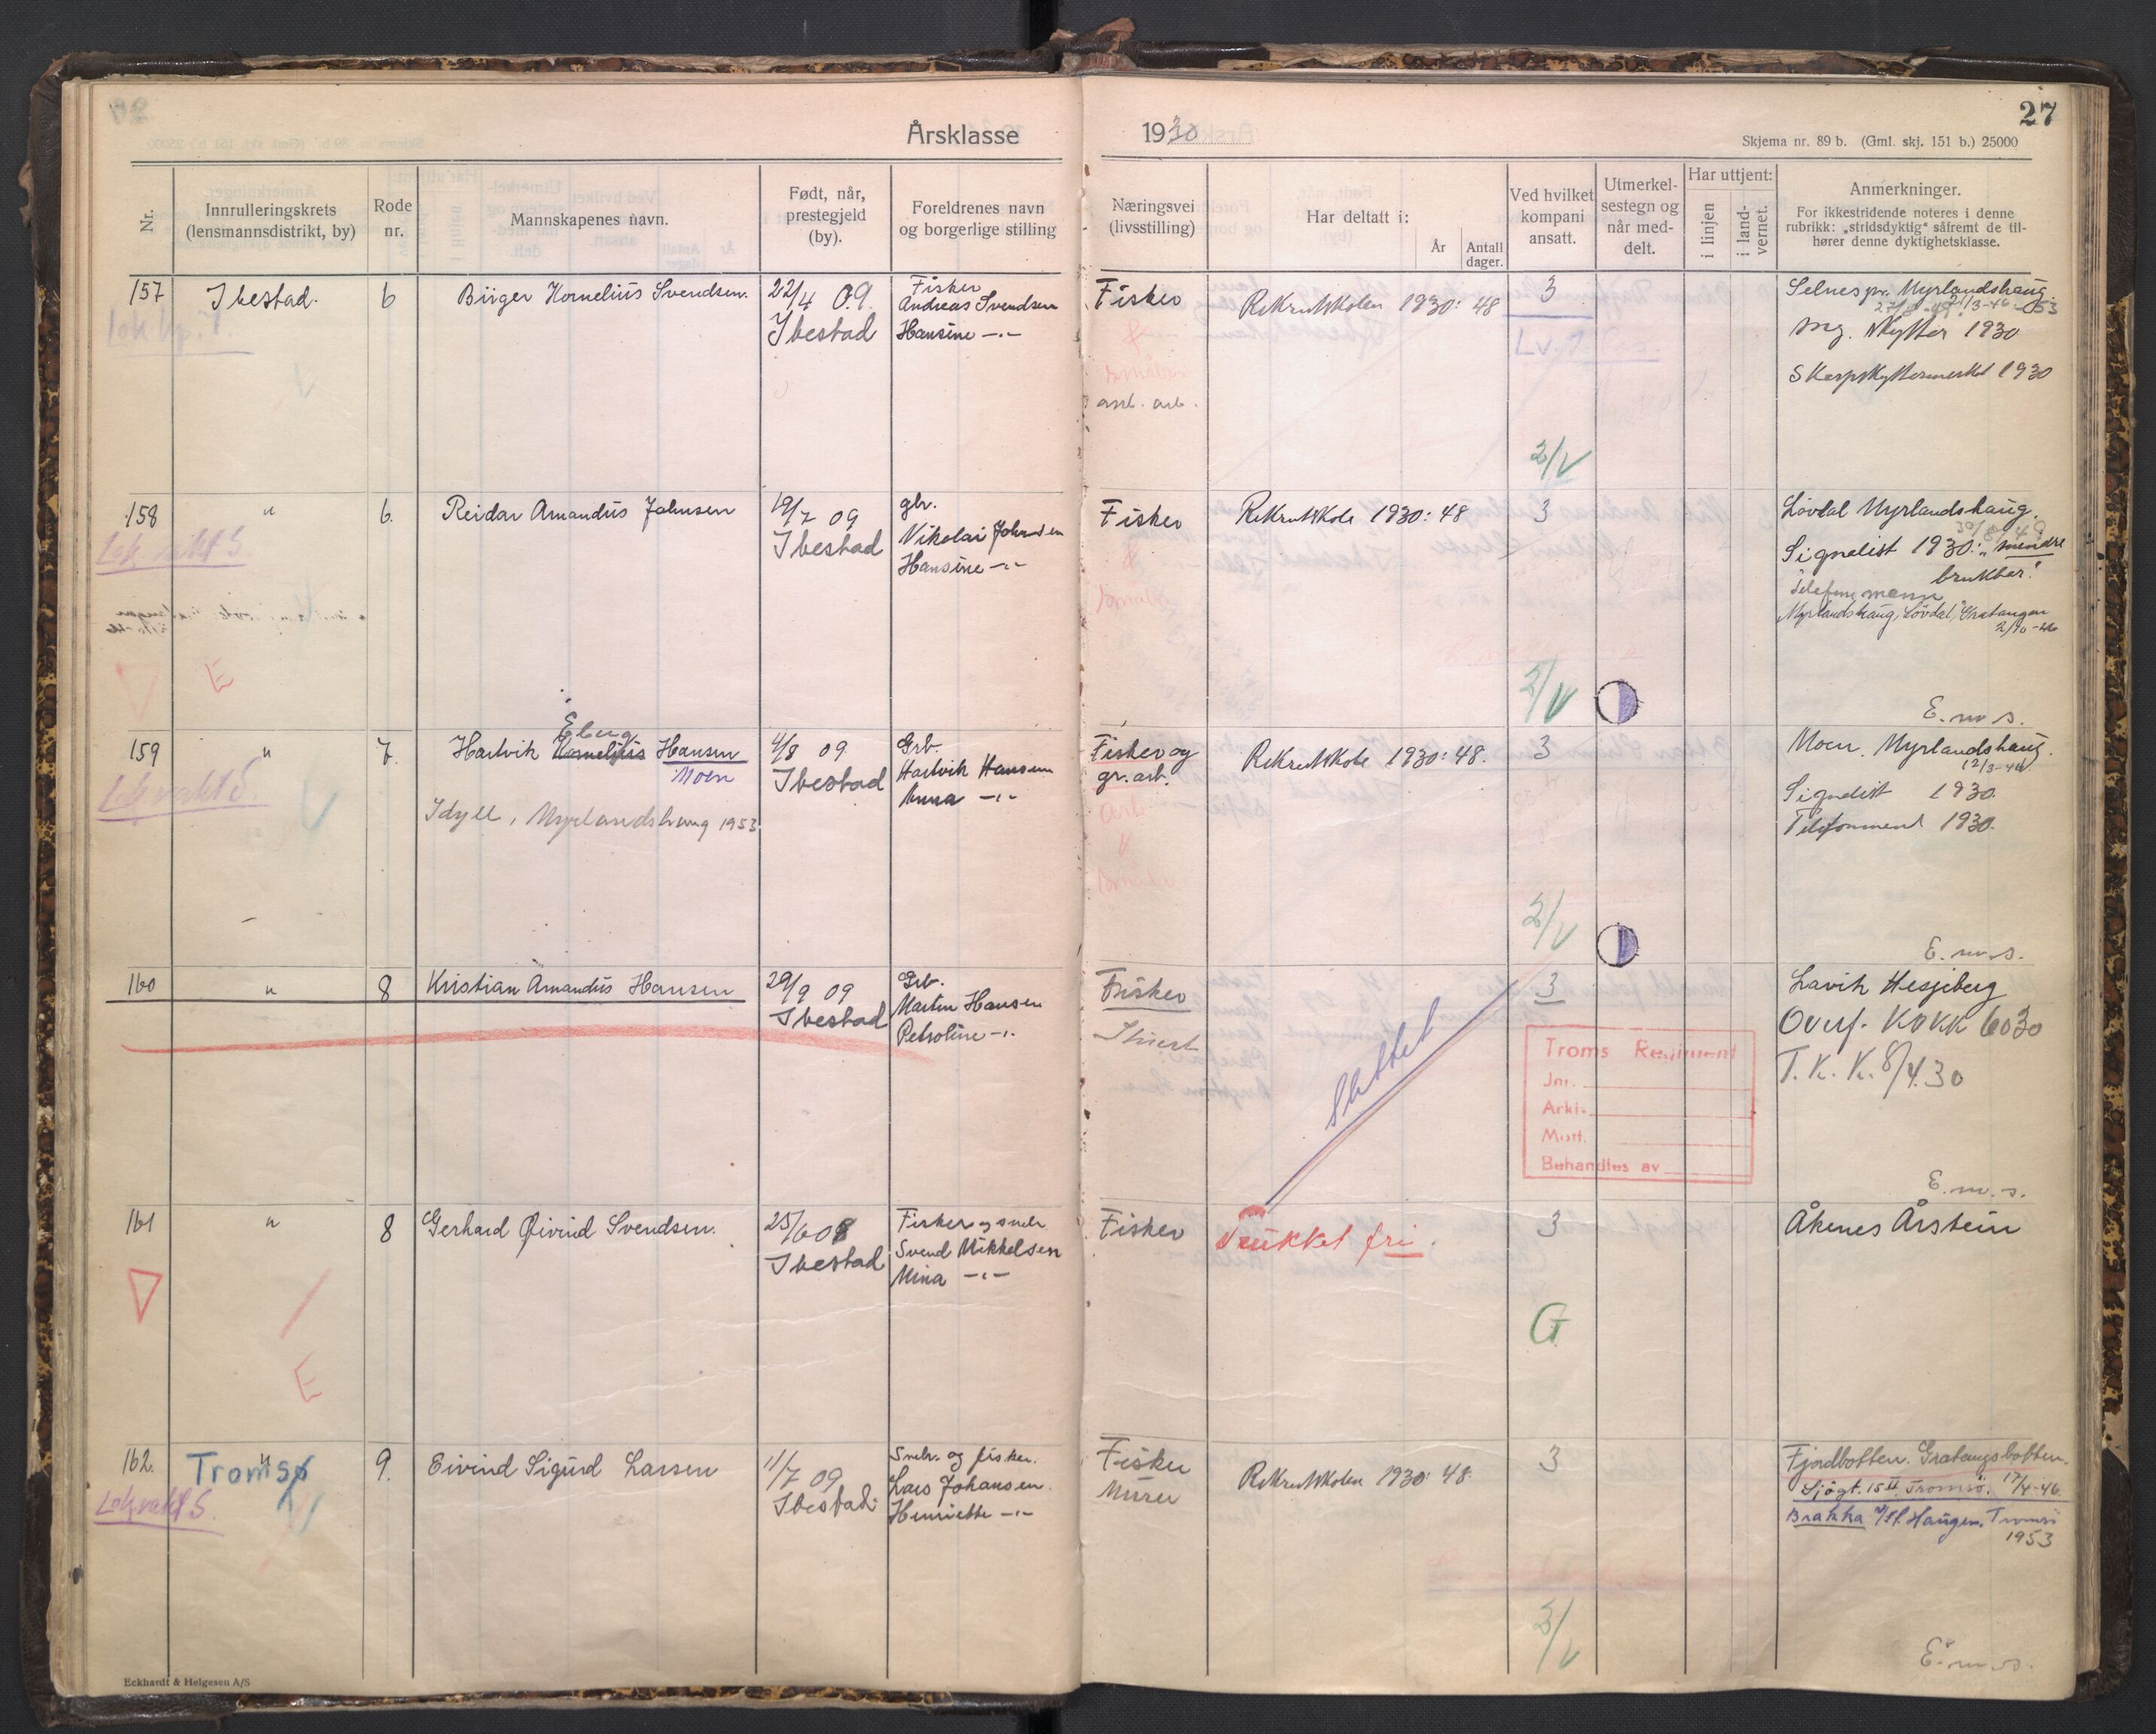 27
Årsklasse 1930
Skjema nr. 89 b. (Gml. skj. 151 b.) 25000
Nr.
Innrulleringskrets
(lensmannsdistrikt, by)
Rode
nr.
Mannskapenes navn.
Født, når,
prestegjeld
(by).
Foreldrenes navn
og borgerlige stilling
Næringsvei
(livsstilling)
Har deltatt i:
År
Antall
dager.
Ved hvilket
kompani
ansatt.
Utmerkel-
sestegn og
når med-
delt.
Har uttjent:
i linjen
i land-
vernet.
Anmerkninger.
For ikkestridende noteres i denne
rubrikk: „stridsdyktig" såfremt de til-
hører denne dyktighetsklasse.
157
Ibestad.
6
Birger Kornelius Svendsen.
22/4 09.
Ibestad
Fisker
Andreas Svendsen
Hansine -"-
Fisker
anl. arb.
Rekrutskolen 1930: 48
3
Lv. 1
2/V
Selnes pr. Myrlandshaug.
21/3-46 - 53
mg. skytter 1930
Skarpskyttermerket 1930
158
Lok. vakt S.
"
6.
Reidar Amandus Johnsen
19/7 09
Ibestad
gbr.
Nikolai Johnsen
Hansine -"-
Fisker
Rekrutskole 1930: 48
3
2/V
Lövdal Myrlandshaug.
Signalist 1930: „mindre
brukbar."
Telefonmann
Myrlandshaug, Lövdal, Gratangen
2/10-46
E. m. s.
E
159
Lok. vakt S.
"
7.
Ebug
Hartvik Kornelius Hansen
Moen
Idyll, Myrlandshaug 1953
4/8 09.
Ibestad
Grb.
Hartvik Hansen
Anna -"-
Fisker og
gr. arb.
Arb.
Rekrutskole 1930: 48.
3
2/V
Moen. Myrlandshaug.
12/3-46
Signalist 1930.
Telefonment 1930.
E. m. s.
160
"
8
Kristian Amandus Hansen
29/9 09
Ibestad
Grb.
Martin Hansen
Petroline -"-
Fisker
Stuert
slettet
3
Troms Regiment
Jnr.
Arki.
Mott.
Behandles av
Lavik Hesjeberg
Overf. KOKK 6030
T. K. K. 8/4.30
E. m. s.
161
"
8
Gerhard Øivind Svendsen.
25/6 08
Ibestad
Fisker og smbr.
Svend Mikkelsen
Mina -"-
Fisker
Trukket fri.
3
G
Åkenes Årstein
E
162.
Lok. vakt S.
"
Tromsø
9.
Eivind Sigurd Larsen
11/7 09
Ibestad.
Smbr. og fisker.
Lars Johansen.
Henriette -"-
Fisker
Murer
Rekrutskolen 1930: 48.
3
3/V
Fjordbotten. Gratangsbotten.
Sjögt. 15 II Tromsö. 17/4-46.
Brakka v/Pl. Haugen. Tromsö
1953
E. m. s.
Eckhardt & Helgesen A/S